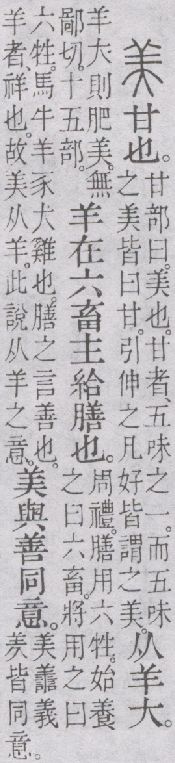 美 甘也。甘部曰。美也。甘者、五味之一。而五味之美皆曰甘。引伸之凡好皆謂之美。从羊大。
羊大則肥美。無鄙切。十五部。羊在六畜主給膳也。周禮。膳用六牲。始養之曰六畜。將用之曰
六牲。馬牛羊豕犬雞也。膳之言善也。羊者祥也。故美从羊。此說从羊之意。美與善同意。美譱義羑皆同意。